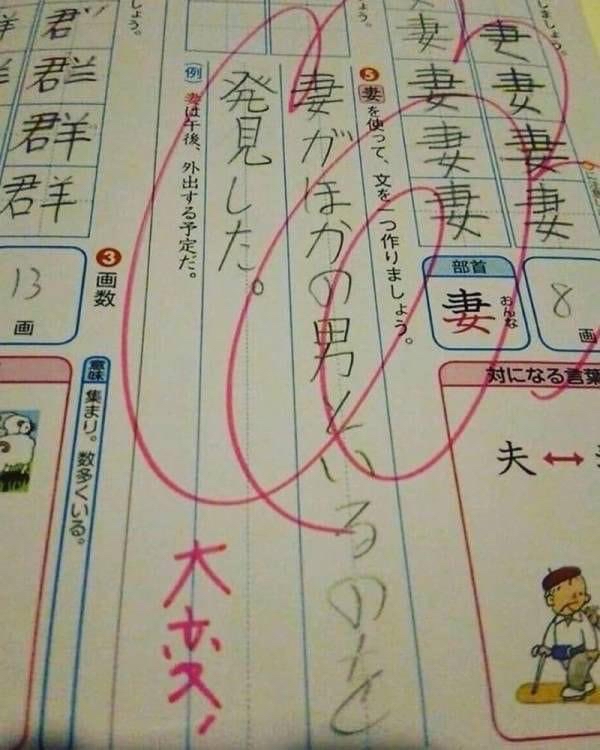 しましょう。
妻
妻
妻
妻
妻
妻
妻
妻
8画
部首
妻
おんな
対になる言葉
夫↔
❺妻を使って、文を一つ作りましょう。
妻がほかの男といるのを
発見した。
(例)妻は午後、外出する予定だ。
大変!
ょう。
しょう。
❸画数
13画
意味 集まり。数多くいる。
群
群
群
群